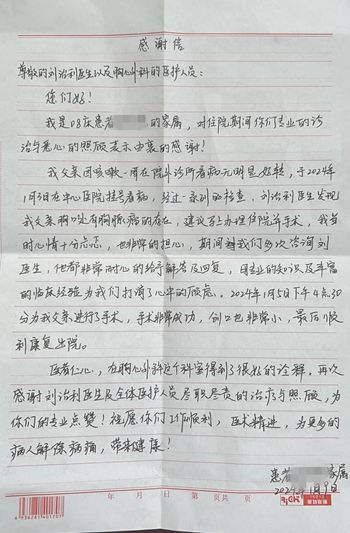 感谢信
尊敬的刘治利医生以及胸心外科的医护人员:
您们好!
我是08床患者 的家属,对住院期间你们专业的诊
治与悉心的照顾表示由衷的感谢!
我父亲因咳嗽一周在院外诊所看病无明显好转,于2024年
1月3日在中心医院挂号看病,经过一系列的检查,刘治利医生发现
我父亲胸口处有胸腺瘤的存在,建议马上办理住院并手术,我当
时心情十分忐忑,也非常的担心,期间我们多次咨询刘
医生,他都非常耐心的给予解答及回复,用专业的知识以及丰富
的临床经验为我们打消了心中的顾虑。2024年1月5日下午4点30
分为我父亲进行了手术,手术非常成功,创口也非常小,最后顺
利康复出院。
医者仁心,在胸心外科这个科室得到了很好的诠释。再次
感谢刘治利医生及全体医护人员尽职尽责的治疗与照顾,为
你们的专业点赞!祝愿你们工作顺利,医术精进,为更多的
病人解除病痛,带来健康!
患者 家属
2024年1月9日
年 月 日 第 页共 页
6936281401703